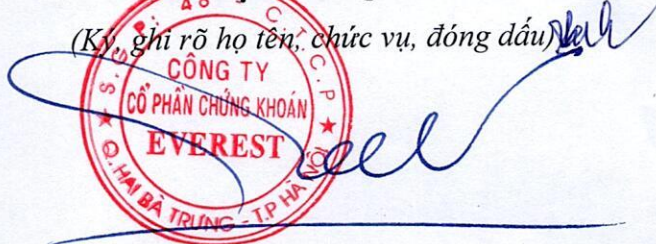 (Ký, ghi rõ họ tên, chức vụ, đóng dấu)
CÔNG TY
CỔ PHẦN CHỨNG KHOÁN
EVEREST
Q. HAI BÀ TRƯNG - T.P HÀ NỘI